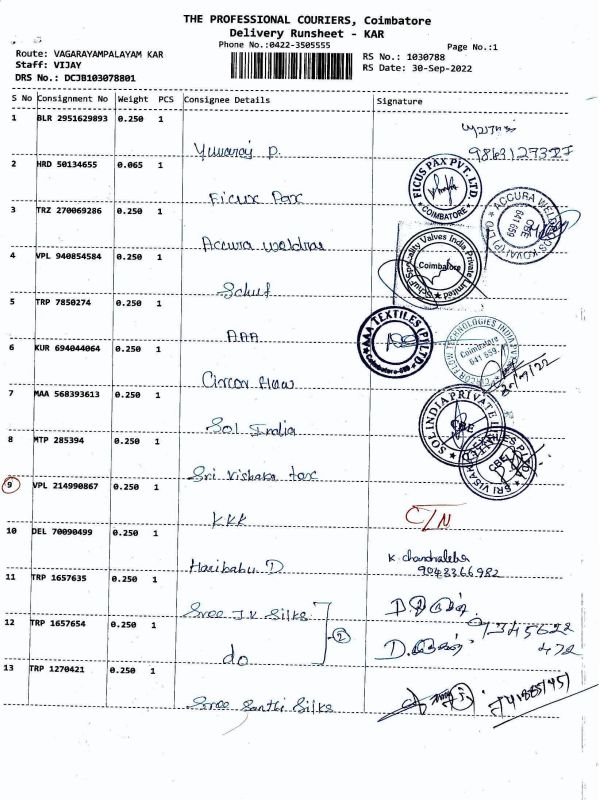 THE PROFESSIONAL COURIERS, Coimbatore
Delivery Runsheet - KAR
Phone No.:0422-3505555
Page No.:1
Route: VAGARAYAMPALAYAM KAR
Staff: VIJAY
DRS No.: DCJB103078801
RS No.: 1030788
RS Date: 30-Sep-2022
S No Consignment No Weight PCS Consignee Details Signature
1 BLR 2951629893 0.250 1
Yuvaraj P.
2 HRD 50134655 0.065 1
Ficux Pax
FICUS PAX PVT. LTD.
COIMBATORE
3 TRZ 270069286 0.250 1
Accura weldras
641 659
4 VPL 940854584 0.250 1
Schuf
Schuf Speciality Valves India Private Limited
Coimbatore
5 TRP 7850274 0.250 1
AAA
AAA TEXTILES (P) LTD
Coimbatore
6 KUR 694044064 0.250 1
Circor flow
Coimbatore
641 659.
7 MAA 568393613 0.250 1
Sol India
SOL INDIA PRIVATE
CBE
8 MTP 285394 0.250 1
Sri Vishaka tex
CBE
9 VPL 214990867 0.250 1
KKK
C/N
10 DEL 70090499 0.250 1
Haribabu D
K. chandraleka
9048366982
11 TRP 1657635 0.250 1
Sree J.V Silks
12 TRP 1657654 0.250 1
do
2
13 TRP 1270421 0.250 1
Sree Santhi Silks